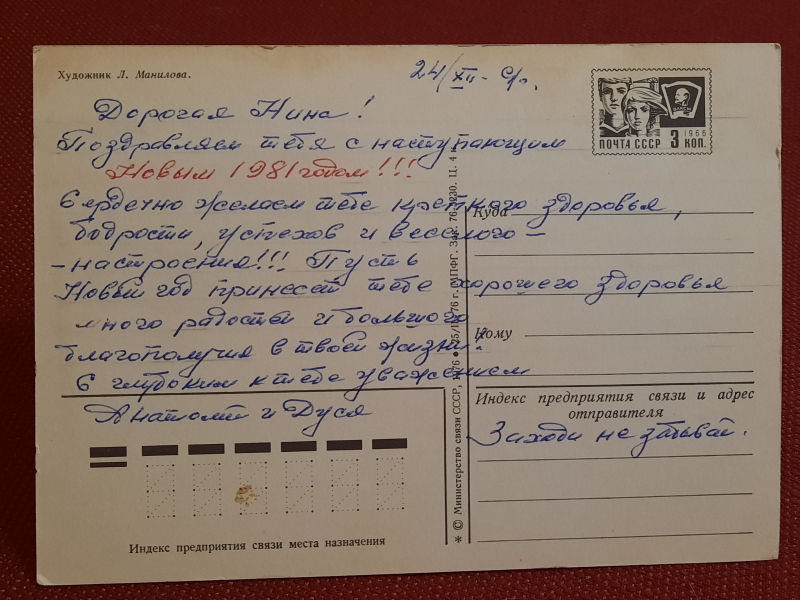 Художник Л. Манилова.
24/XII-
1966
ПОЧТА СССР 3 КОП.
Дорогая Нина!
Поздравляем тебя с наступающим
Новым 1981 годом!!!
Сердечно желаем тебе крепкого здоровья,
бодрости, успехов и веселого –
– настроения!!! Пусть
Новый год принесет тебе хорошего здоровья
много радостей и большого
благополучия в твоей жизни!
С глубоким к тебе уважением
Анатолий и Дуся
Куда
Кому
Индекс предприятия связи и адрес
отправителя
Заходи не забывай.
Индекс предприятия связи места назначения
* © Министерство связи СССР, 1976 • 25/II 76 г. МПФГ. Зак. 76 230. Ц. 4 к.